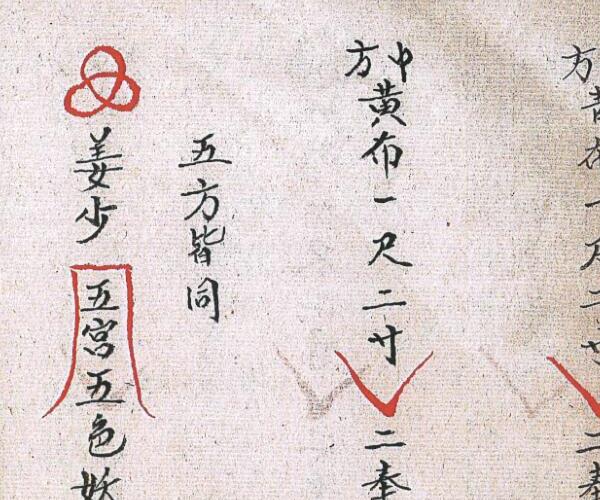 方青布一尺二寸二
中方黄布一尺二寸二奉
五方皆同
姜少五宫五色妖